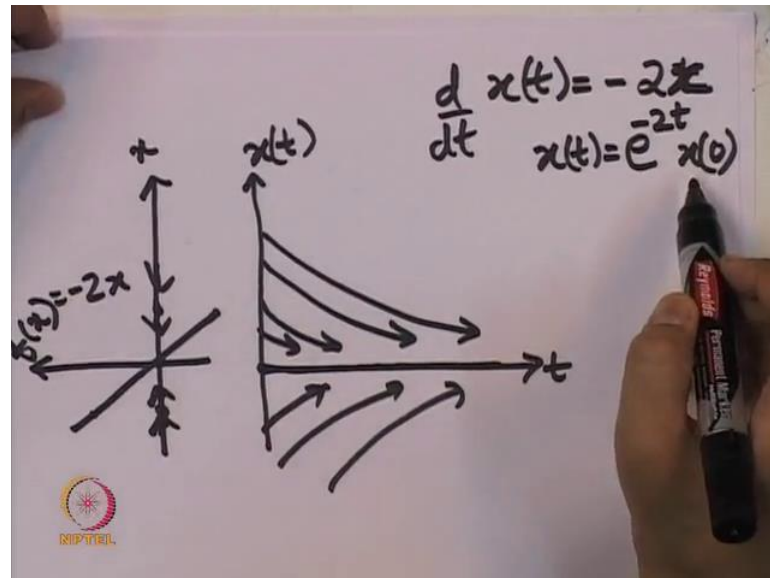 d/dt x(t) = - 2x
x(t) = e^{-2t} x(0)
x
x(t)
f(x) = -2x
t
Reynolds
Permanent Marker
NPTEL